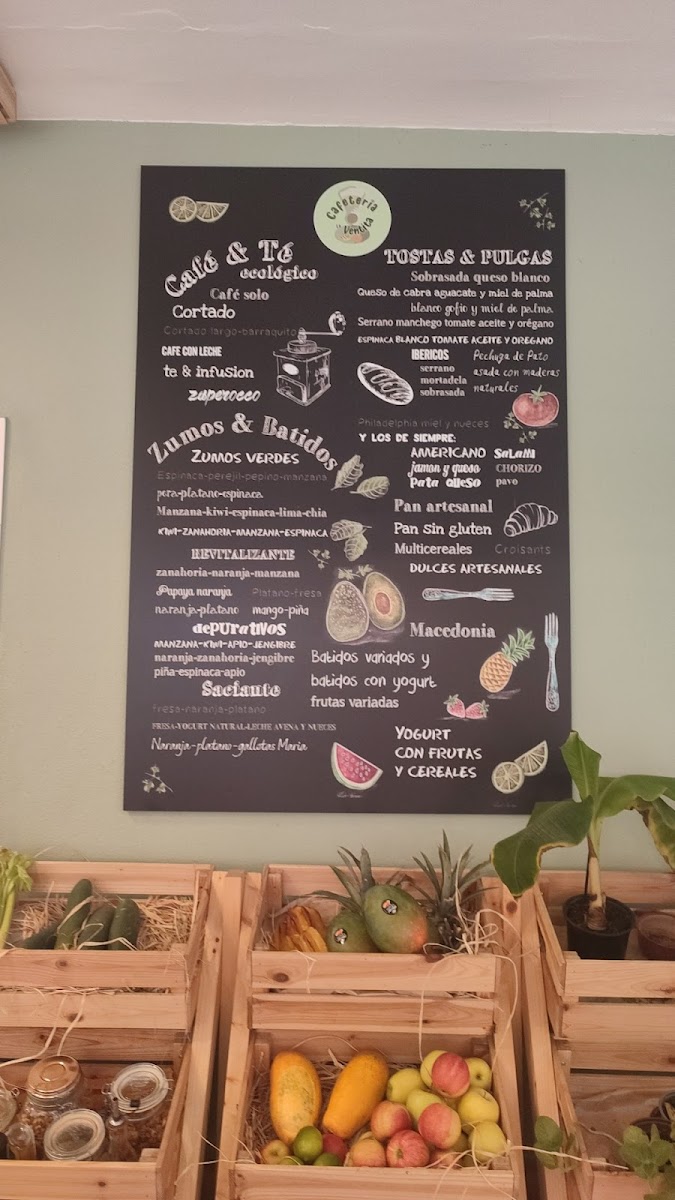 Cafetería
la Ventita
Café & Té
ecológico
Café solo
Cortado
Cortado largo-barraquito
CAFE CON LECHE
te & infusion
zaperocco
Zumos & Batidos
ZUMOS VERDES
Espinaca-perejil-pepino-manzana
pera-platano-espinaca
Manzana-kiwi-espinaca-lima-chia
KIWI-ZANAHORIA-MANZANA-ESPINACA
REVITALIZANTE
zanahoria-naranja-manzana
Papaya naranja Platano-fresa
naranja-platano mango-piña
depurativos
MANZANA-KIWI-APIO-JENGIBRE
naranja-zanahoria-jengibre
piña-espinaca-apio
Saciante
fresa-naranja-platano
FRESA-YOGURT NATURAL-LECHE AVENA Y NUECES
Naranja-platano-galletas Maria
TOSTAS & PULGAS
Sobrasada queso blanco
Queso de cabra aguacate y miel de palma
blanco gofio y miel de palma
Serrano manchego tomate aceite y orégano
ESPINACA BLANCO TOMATE ACEITE Y OREGANO
IBERICOS
serrano
mortadela
sobrasada
Pechuga de Pato
asada con maderas
naturales
Philadelphia miel y nueces
Y LOS DE SIEMPRE:
AMERICANO SALAMI
jamon y queso CHORIZO
Pata queso pavo
Pan artesanal
Pan sin gluten
Multicereales Croisants
DULCES ARTESANALES
Macedonia
Batidos variados y
batidos con yogurt
frutas variadas
YOGURT
CON FRUTAS
Y CEREALES